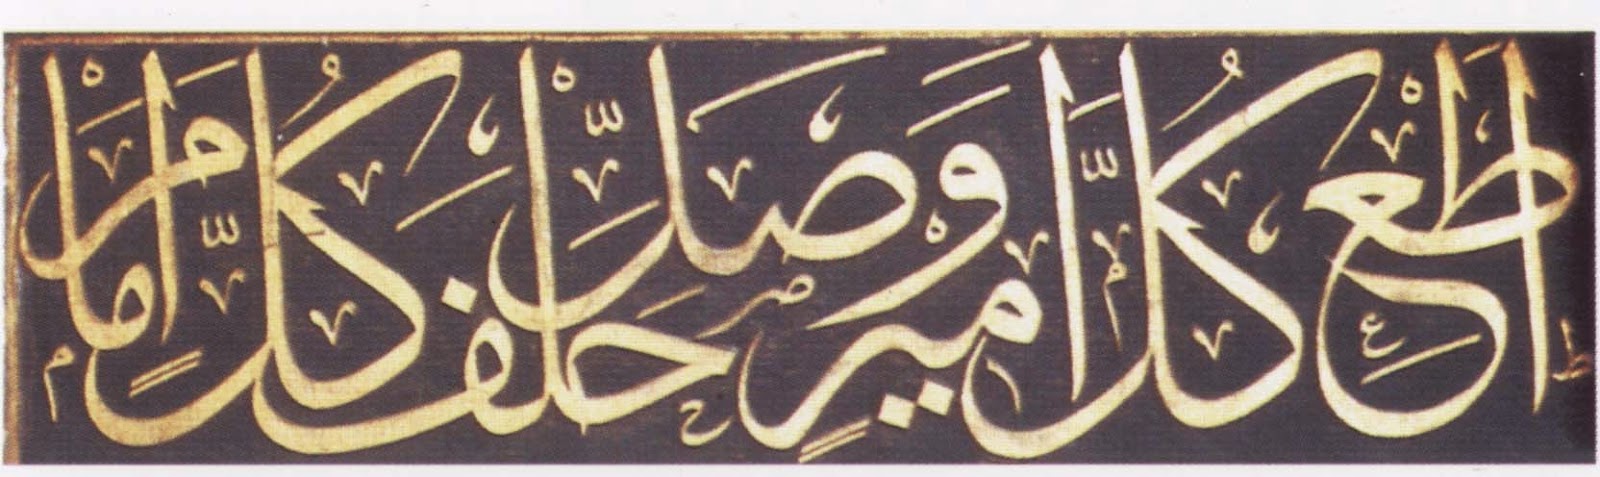 اَطِعْ كُلَّ اَمِيرٍ وَصَلِّ خَلْفَ كُلِّ اِمَامٍ